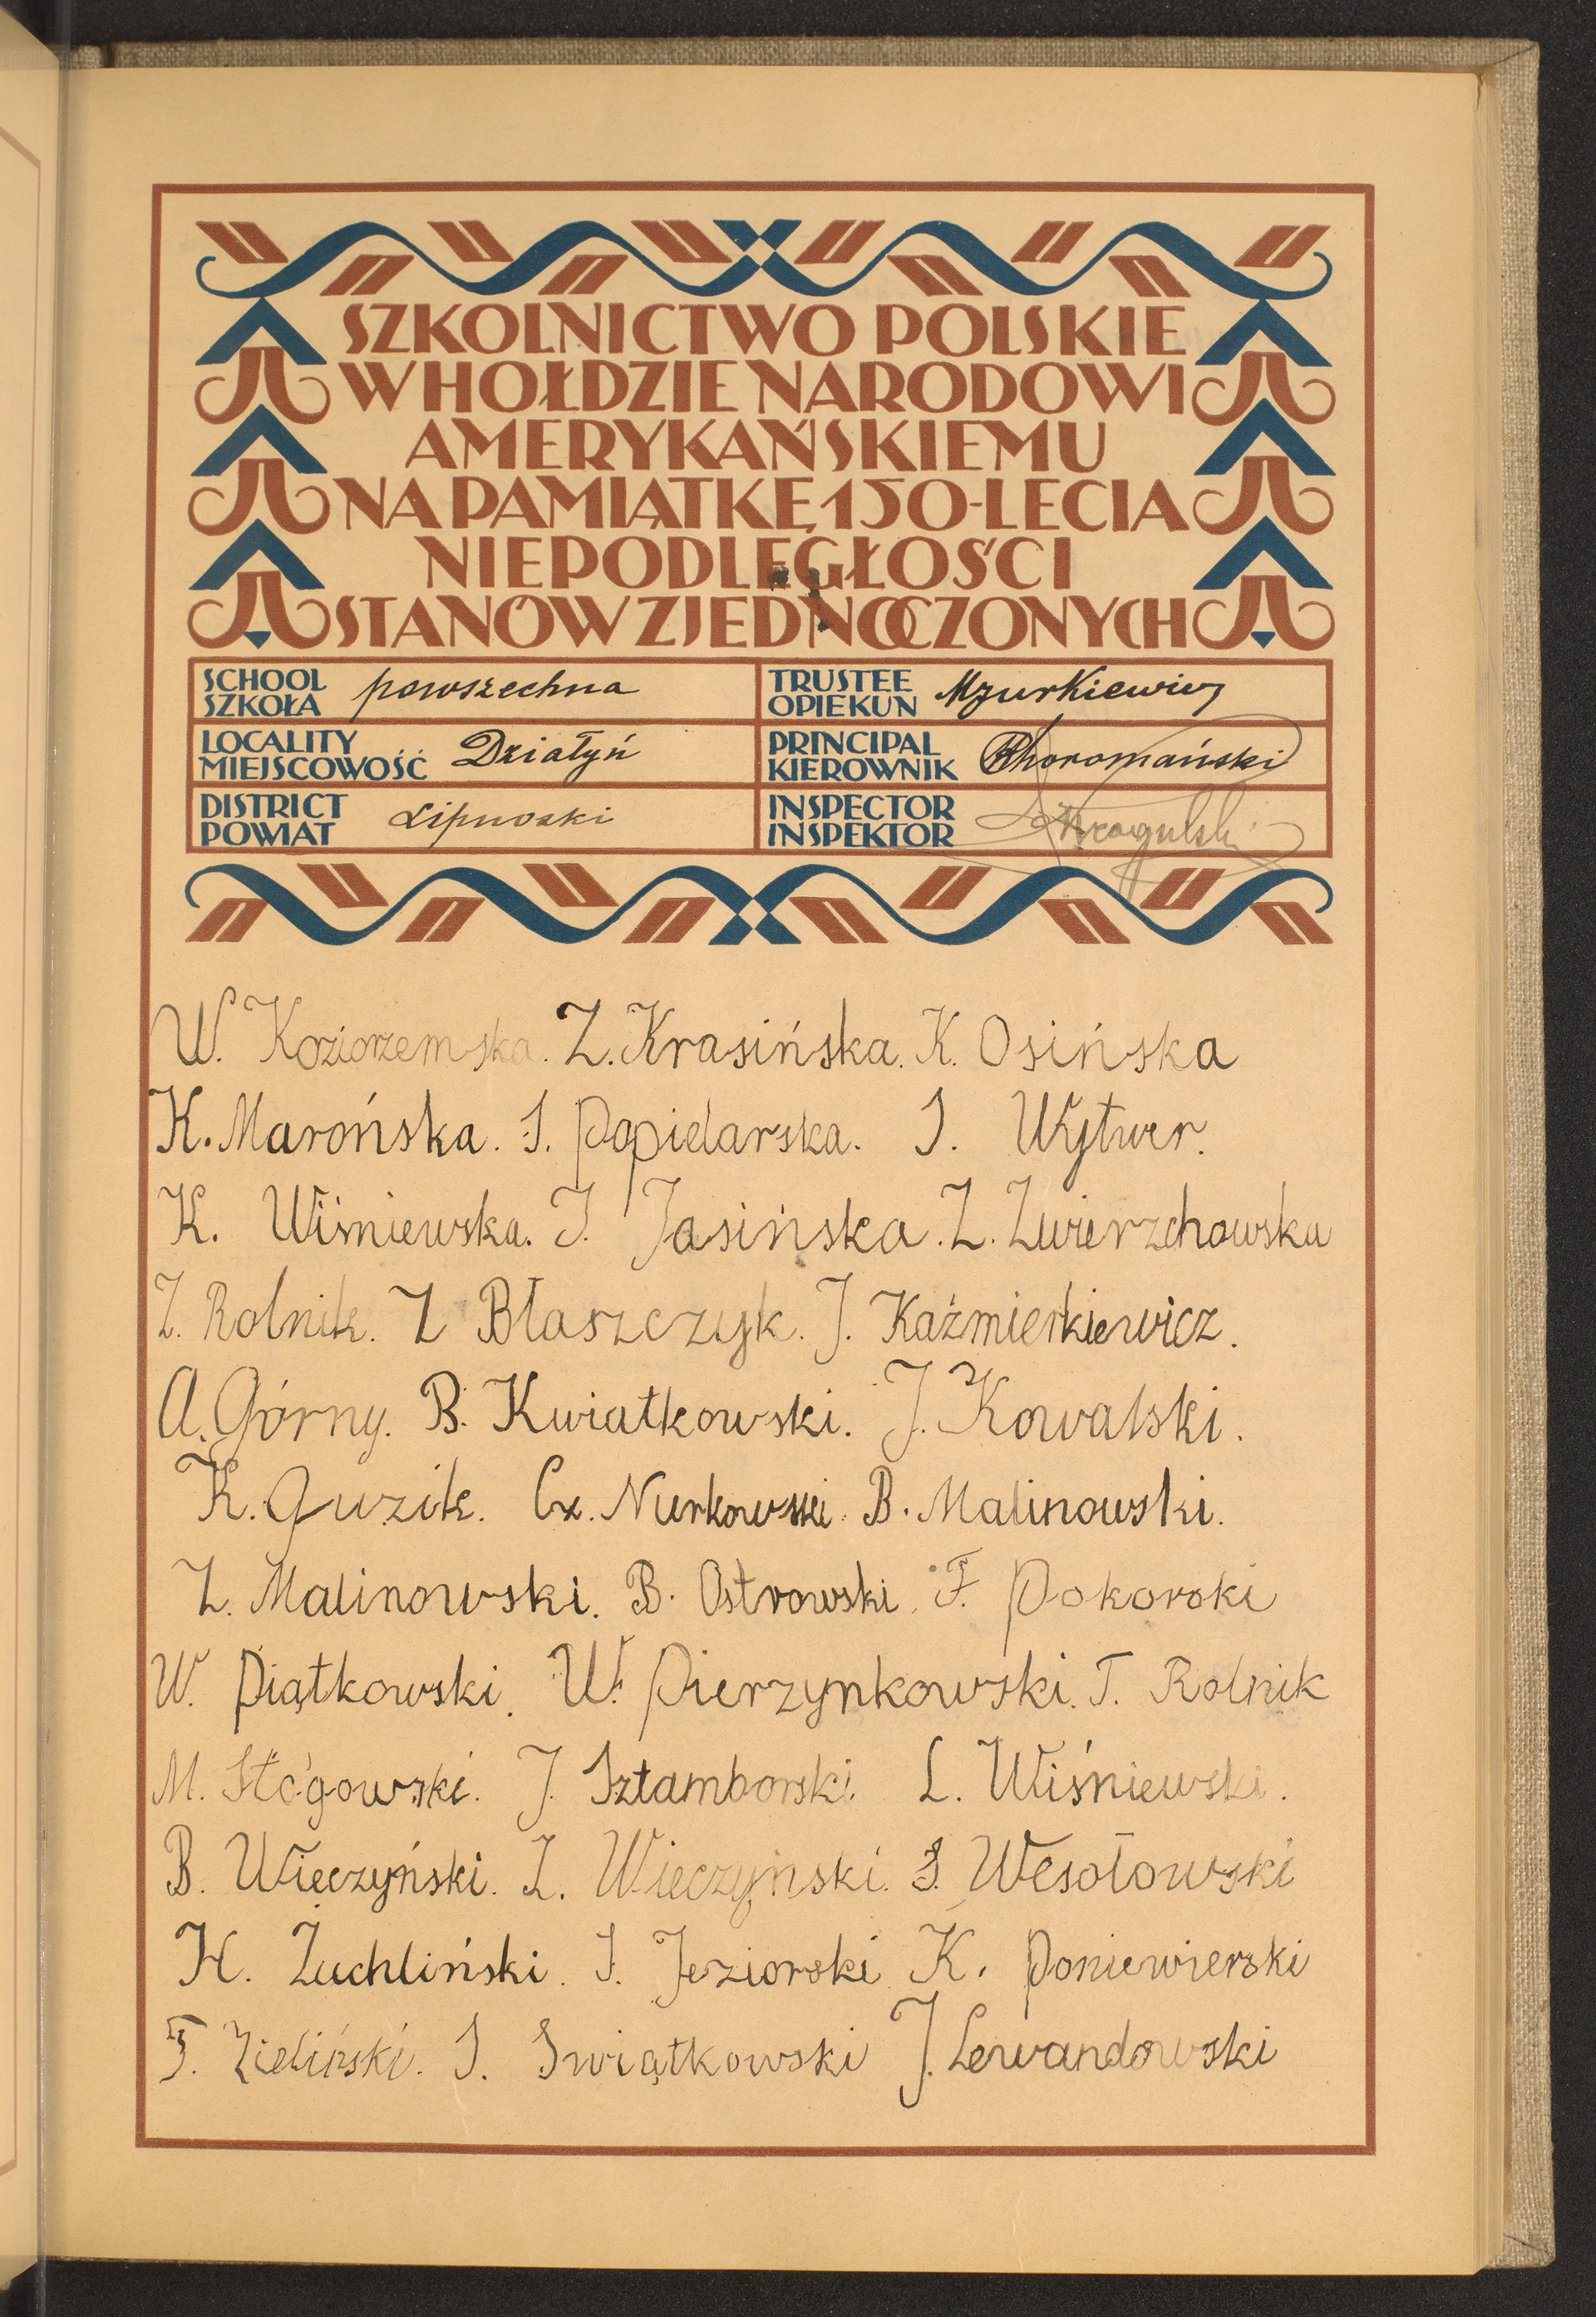 SZKOLNICTWO POLSKIE
W HOŁDZIE NARODOWI
AMERYKAŃSKIEMU
NA PAMIĄTKĘ 150-LECIA
NIEPODLEGŁOŚCI
STANÓW ZJEDNOCZONYCH
SCHOOL SZKOŁA powszechna
TRUSTEE OPIEKUN Mzurkiewicz
LOCALITY MIEJSCOWOŚĆ Działyń
PRINCIPAL KIEROWNIK Choromański
DISTRICT POWIAT Lipnoski
INSPECTOR INSPEKTOR
W. Koziorzemska. Z. Krasińska. K. Osińska
K. Marońska. S. Popielarska. J. Wytwer.
K. Wiśniewska. J. Jasińska. Z. Zwierzchowska
Z. Rolnik. Z Błaszczyk. J. Kaźmierkiewicz.
A. Górny. B. Kwiatkowski. J. Kowalski.
K. Guzik. Cz. Nurkowski. B. Malinowski.
Z. Malinowski. B. Ostrowski. F. Pokorski
W. Piątkowski. W. Pierzynkowski. T. Rolnik
M. Stógowski. J. Sztamborski. L. Wiśniewski.
B. Wieczyński. Z. Wieczyński. S. Wesołowski
H. Żuchliński. J. Jeziorski K. Poniewierski
T. Zieliński. S. Swiątkowski J. Lewandowski